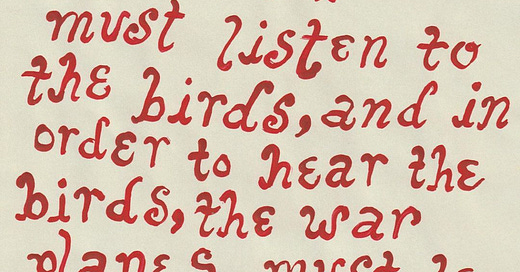 must listen to
the birds, and in
order to hear the
birds, the war
planes must